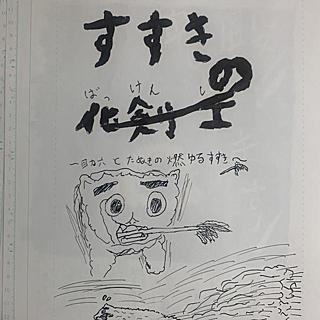 すすきの
ばっ けん し
化剣士
と たぬきの 燃ゆる すすき